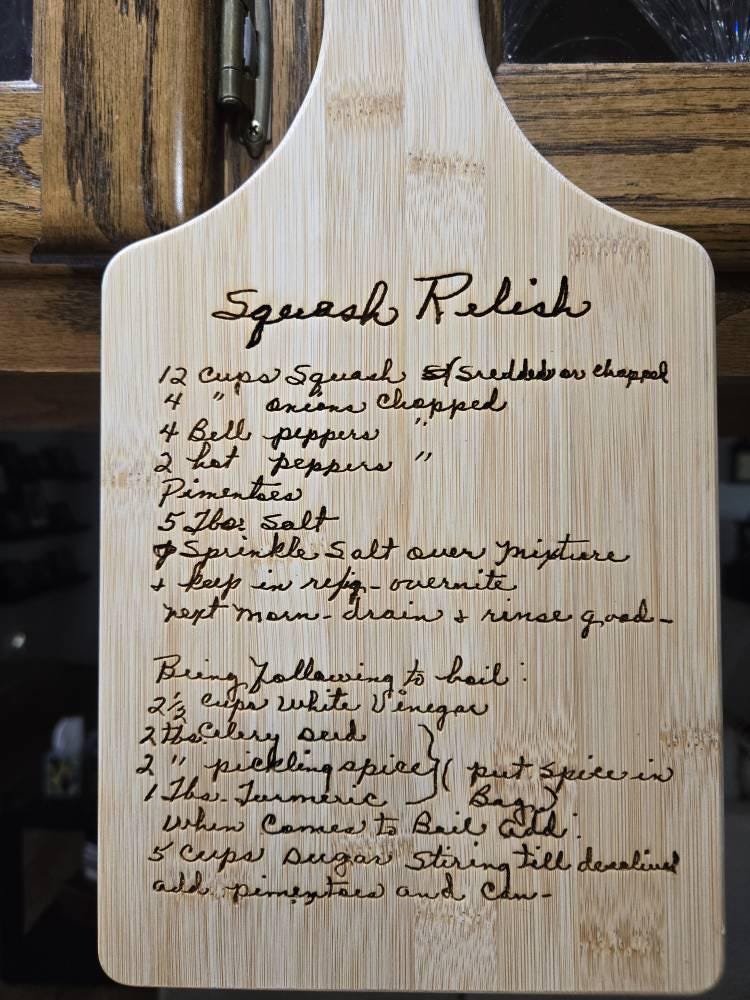 Squash Relish
12 cups Squash Sredded or chopped
4 " onions chopped
4 Bell peppers "
2 hot peppers "
Pimentoes
5 Tbs. Salt
Sprinkle Salt over mixture
+ keep in refig- overnite
next morn- drain + rinse good-
Bring following to boil:
2 1/2 cups White Vinegar
2 Tbs. Celery seed
2 " pickling spice } ( put spice in
1 Tbs. Turmeric Bag)
When Comes to Boil add:
5 cups sugar Stiring till desolived
add pimentoes and can-